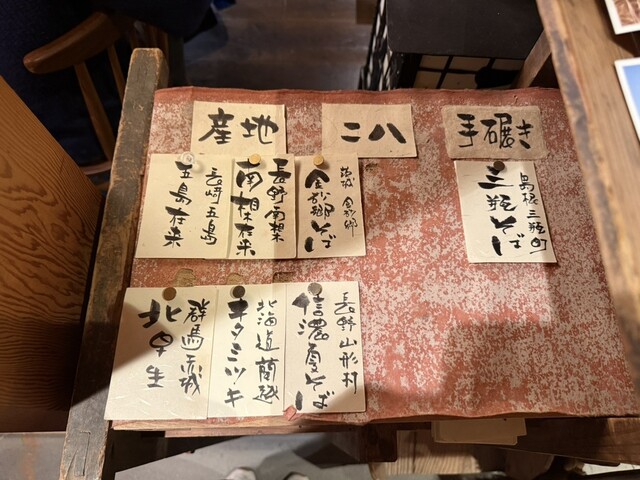 産地
二八
手碾き
長崎 五島
五島在来
長野 南相木
南相木在来
茨城 金砂郷
金砂郷そば
島根 三瓶町
三瓶そば
群馬 赤城
北早生
北海道 蘭越
キタミツキ
長野 山形村
信濃夏そば